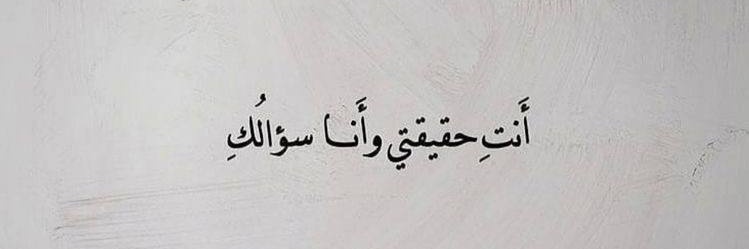 أَنتِ حقيقتي وأَنـا سؤالُكِ